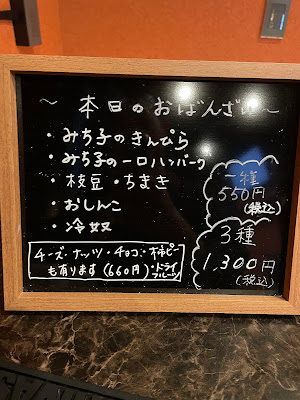 ~ 本日のおばんざい ~
・みち子のきんぴら
・みち子の一口ハンバーグ
・枝豆・ちまき
・おしんこ
・冷奴
一種
550円
(税込)
3種
1,300円
(税込)
チーズ・ナッツ・チョコ・柿ピー
も有ります(660円)・ドライフルーツ